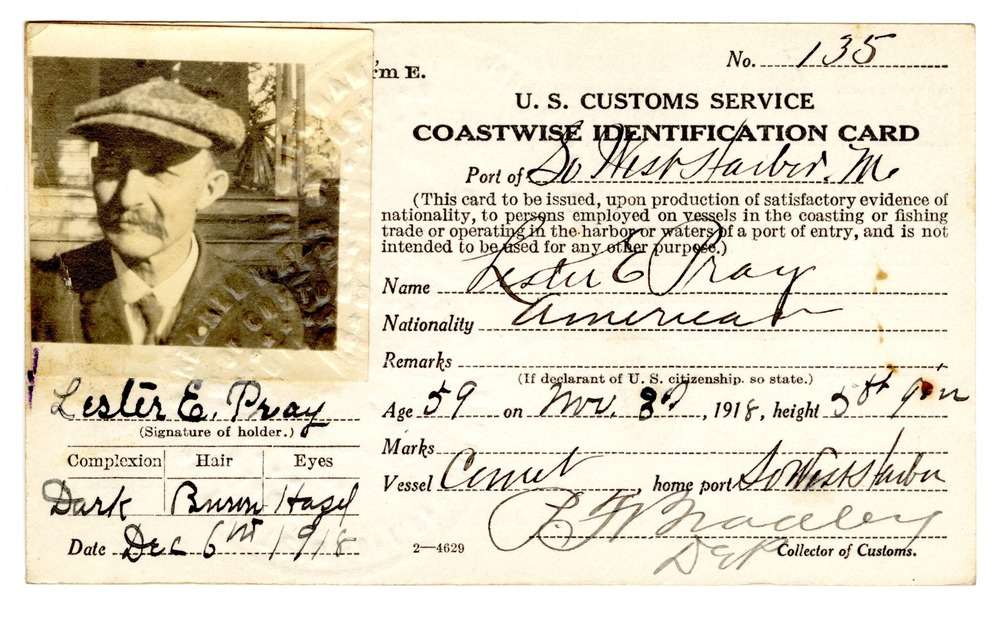 'm E.
No. 135
U. S. CUSTOMS SERVICE
COASTWISE IDENTIFICATION CARD
Port of So West Harbor. Me
(This card to be issued, upon production of satisfactory evidence of
nationality, to persons employed on vessels in the coasting or fishing
trade or operating in the harbor or waters of a port of entry, and is not
intended to be used for any other purpose.)
Name Lester E Pray
Nationality American
Remarks
(If declarant of U. S. citizenship, so state.)
Age 59 on Nov. , 1918, height 5 ft 9 in
Marks
Vessel Comet , home port So West Harbor
Bradley
Dep Collector of Customs.
2—4629
Lester E. Pray
(Signature of holder.)
Complexion Hair Eyes
Dark Hazel
Date Dec 6 1918